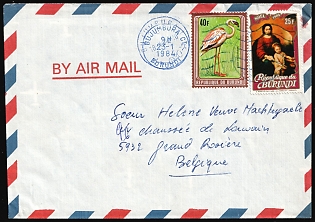 BUJUMBURA
23-1
1984
BURUNDI
40F
REPUBLIQUE DU BURUNDI
25F
République du
BURUNDI
BY AIR MAIL
Soeur Helene
chaussée de Louvain
5932 Grand Rosière
Belgique